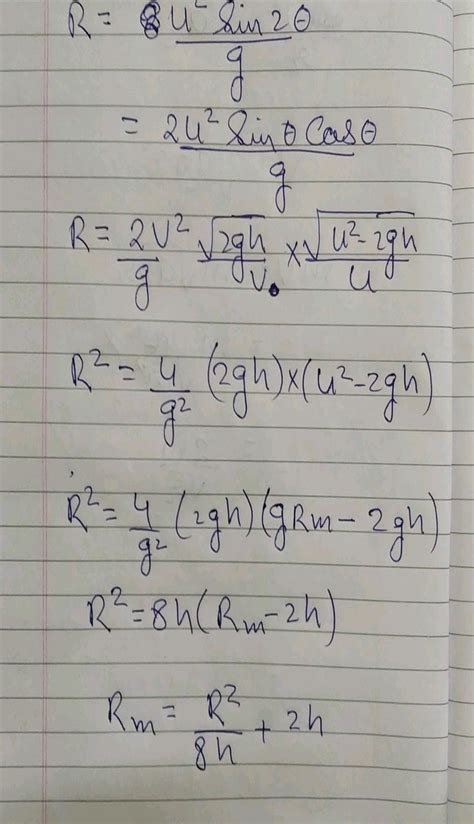 R = u² sin2θ / g
= 2u² sinθ cosθ / g
R = 2U²/g √2gh/U × √u²-2gh/u
R² = 4/g² (2gh)×(u²-2gh)
R² = 4/g² (2gh)(gRm - 2gh)
R² = 8h(Rm-2h)
Rm = R²/8h + 2h